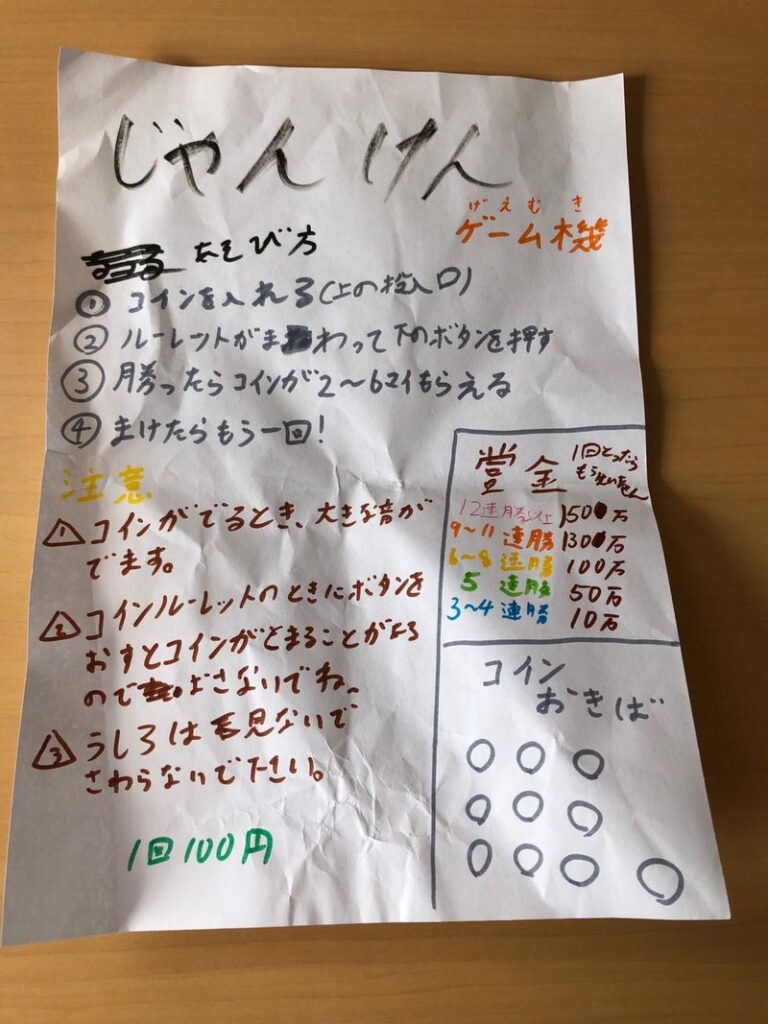 じゃんけん
げえむき
ゲーム機
あそび方
① コインを入れる(上の投入口)
② ルーレットがまわって下のボタンを押す
③ 勝ったらコインが2〜6マイもらえる
④ まけたらもう一回!
注意
1 コインがでるとき、大きな音が
でます。
2 コインルーレットのときにボタンを
おすとコインがとまることがある
ので おさないでね。
3 うしろは毛見ないで
さわらないで下さい。
1回100円
賞金
1回とったら
もうせん
12連勝以上 1500万
9〜11連勝 1300万
6〜8連勝 100万
5連勝 50万
3〜4連勝 10万
コイン
おきば